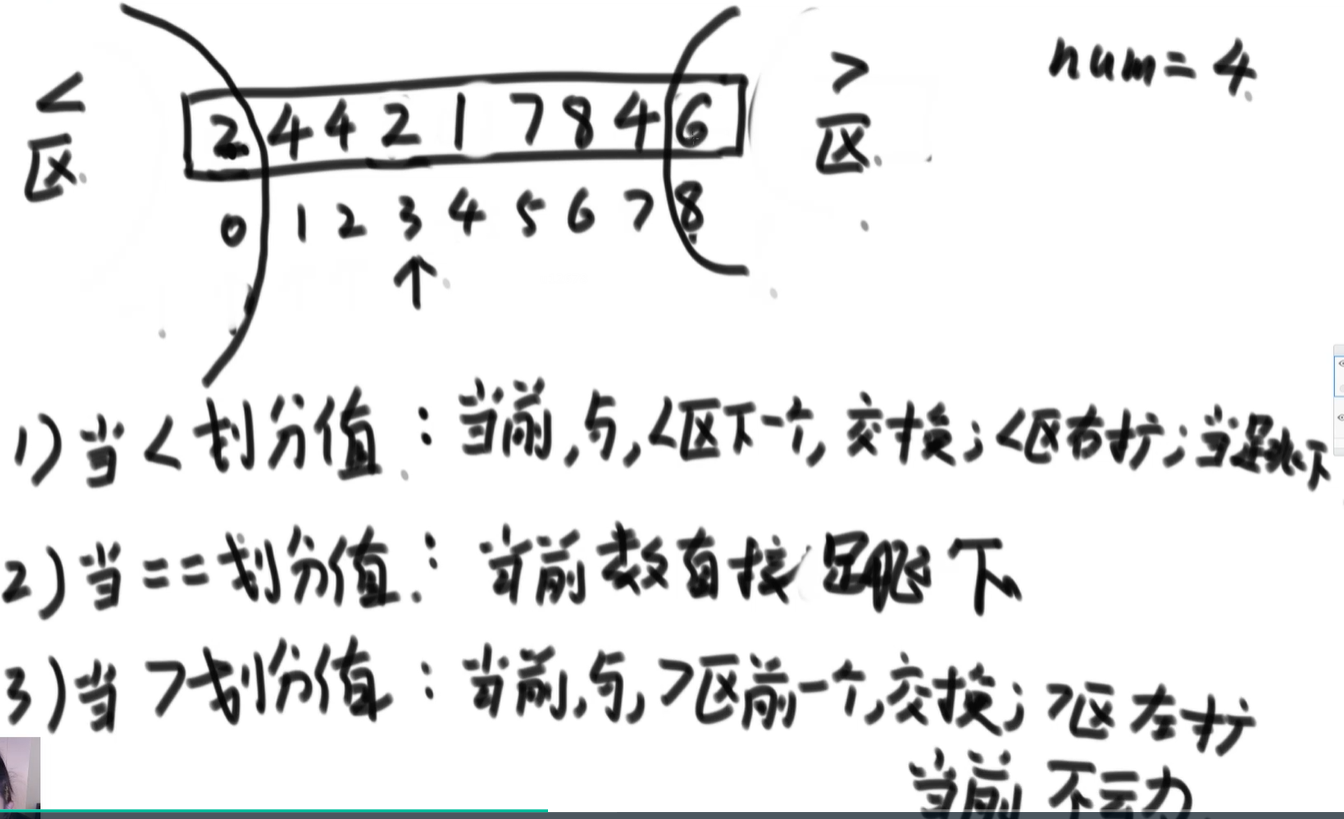 < 区 2 4 4 2 1 7 8 4 6 > 区 num = 4
0 1 2 3 4 5 6 7 8
↑
1) 当 < 划分值 : 当前,与,<区下一个,交换;<区右扩;当跳下
2) 当 == 划分值 : 当前数直接跳下
3) 当 > 划分值 : 当前,与,>区前一个,交换; >区左扩
当前不动